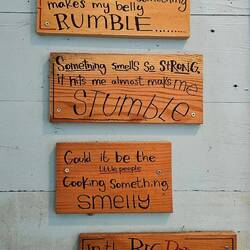 something
makes my belly
RUMBLE..........
Something smells so STRONG,
it hits me almost make me
STUMBLE
Could it be the
little people
Cooking Something,
smelly
In the BIG